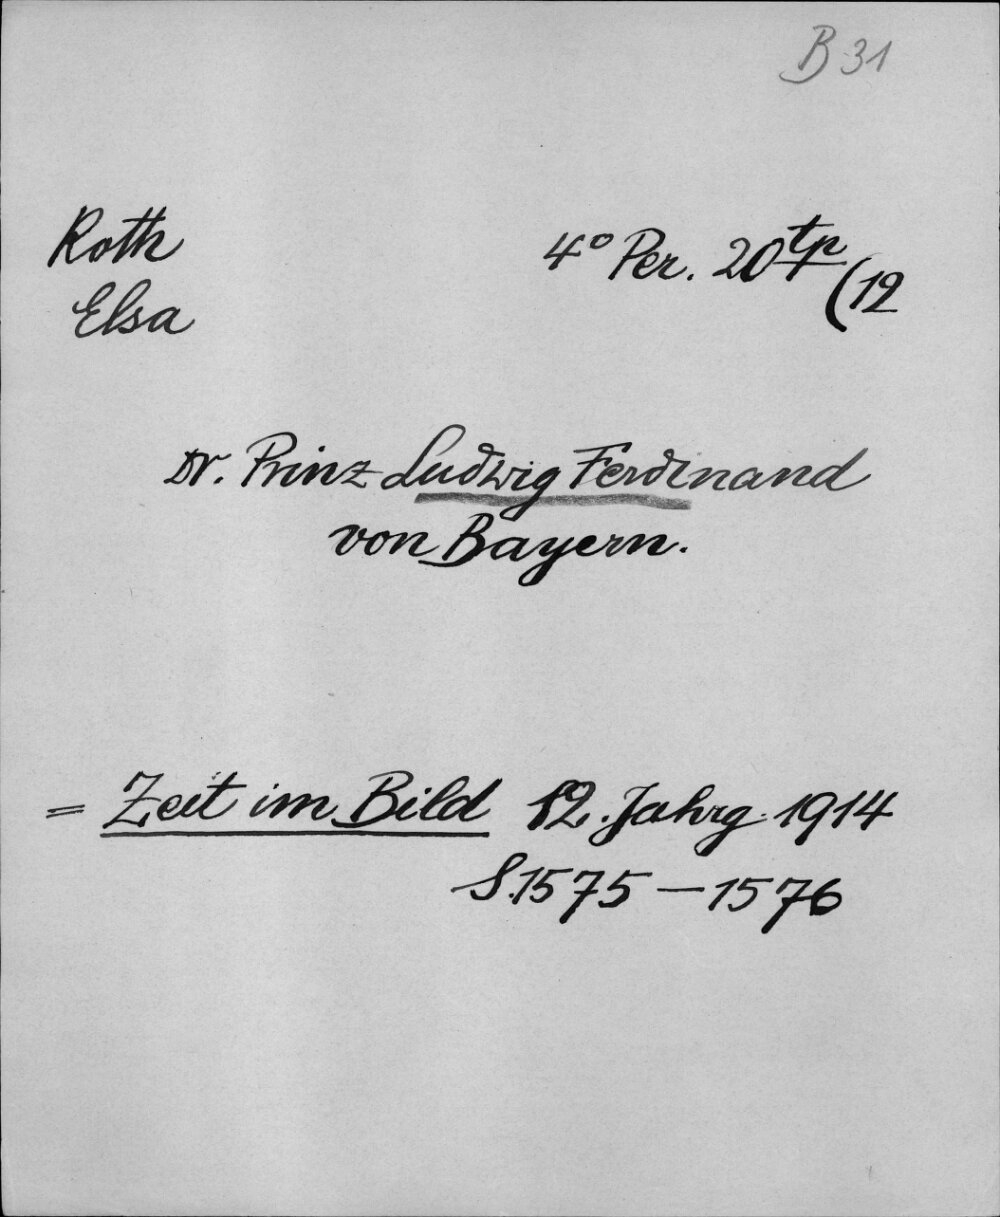 B 31
Roth
Elsa
4° Per. 20 tp (12
Dr. Prinz Ludwig Ferdinand
von Bayern.
= Zeit im Bild 12. Jahrg. 1914
S. 1575 — 1576